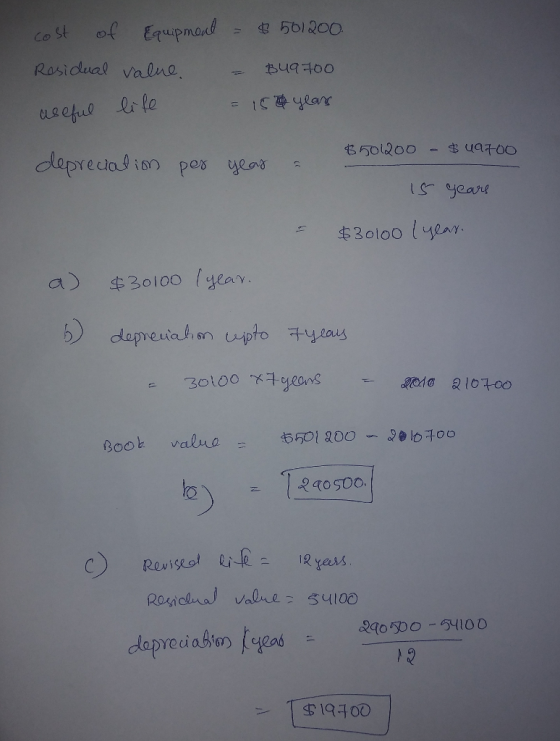 cost of Equipment = $ 501200
Residual value. = $49700
useful life = 15 year
depreciation per year = $501200 - $49700
15 years
= $30100 / year.
a) $30100 / year.
b) depreciation upto 7 years
= 30100 x 7 years = 210700
Book value = $501200 - 210700
b) = 290500.
c) Revised life = 12 years.
Residual value = 54100
depreciation / year = 290500 - 54100
12
= $19700